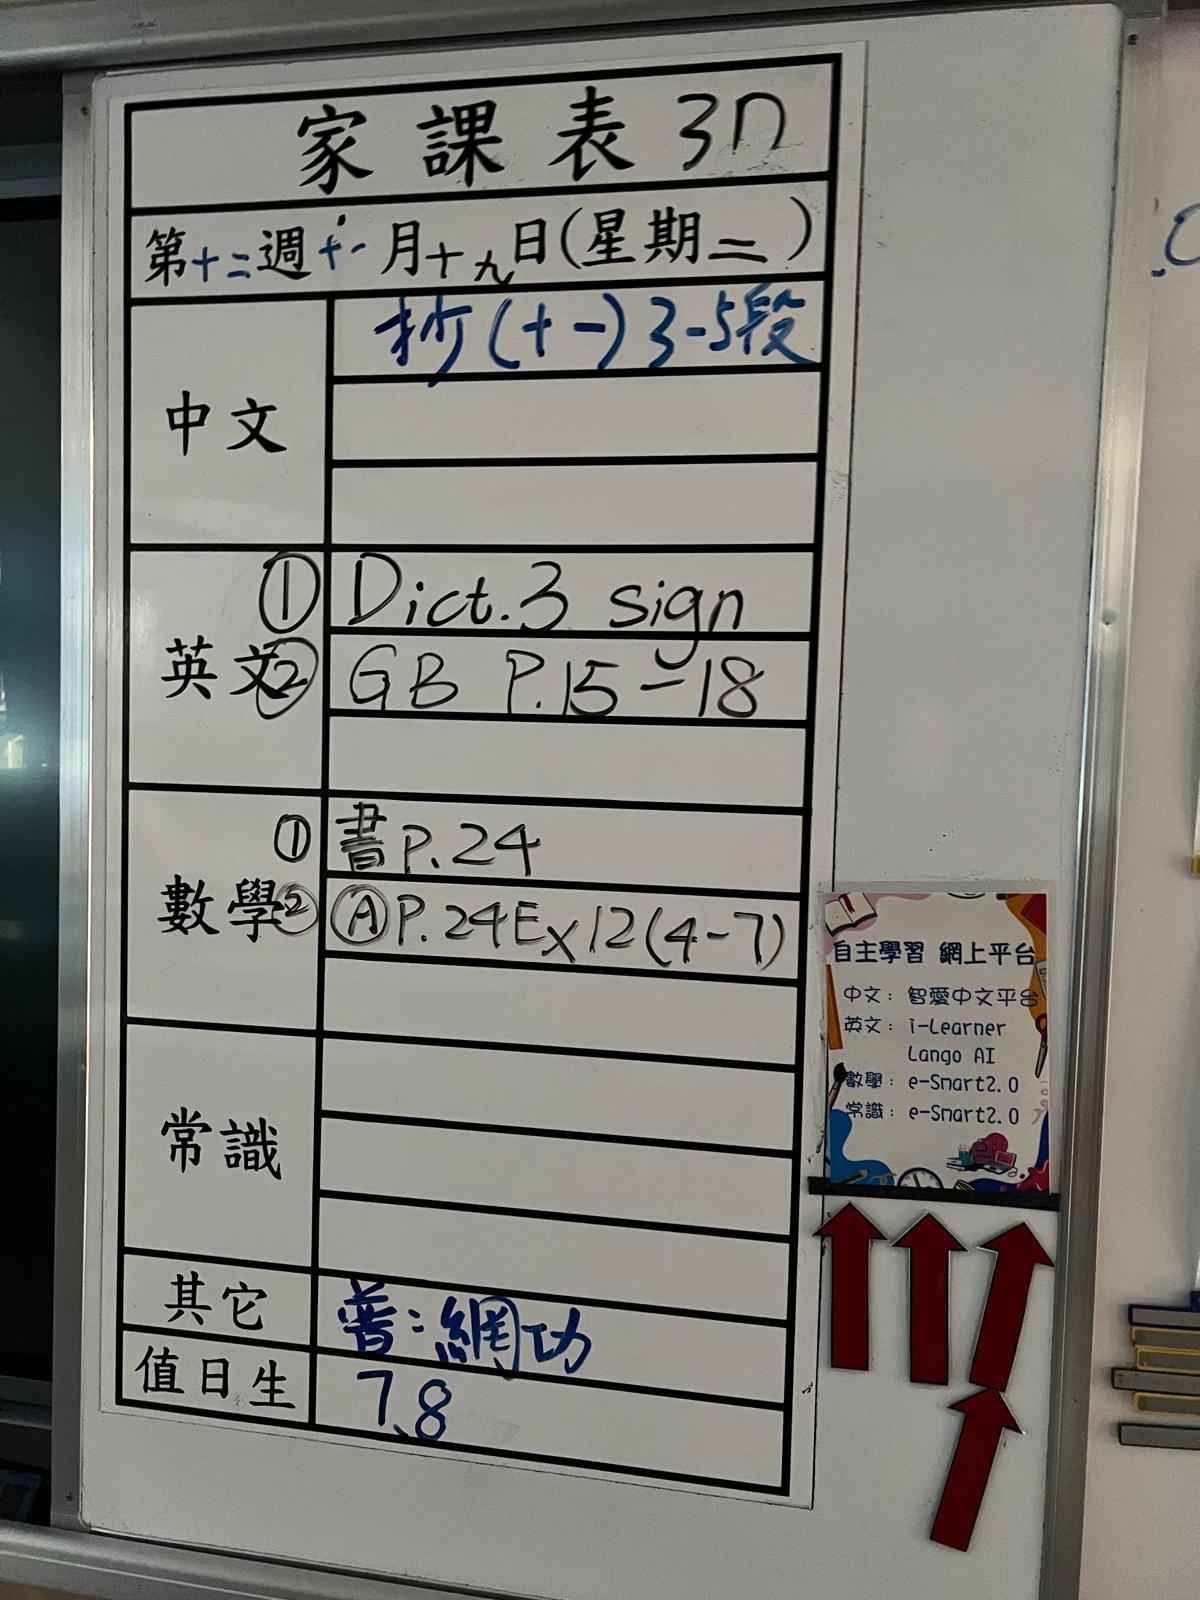 家課表 3D
第十二週十一月十九日(星期二)
中文
抄(十一)3-5段
英文
① Dict.3 sign
② GB P.15-18
數學
① 書P.24
② Ⓐ P.24Ex12(4-7)
常識
其它
普:網功
值日生
7、8
自主學習 網上平台
中文: 智愛中文平台
英文: i-Learner
Lango AI
數學: e-Smart2.0
常識: e-Smart2.0